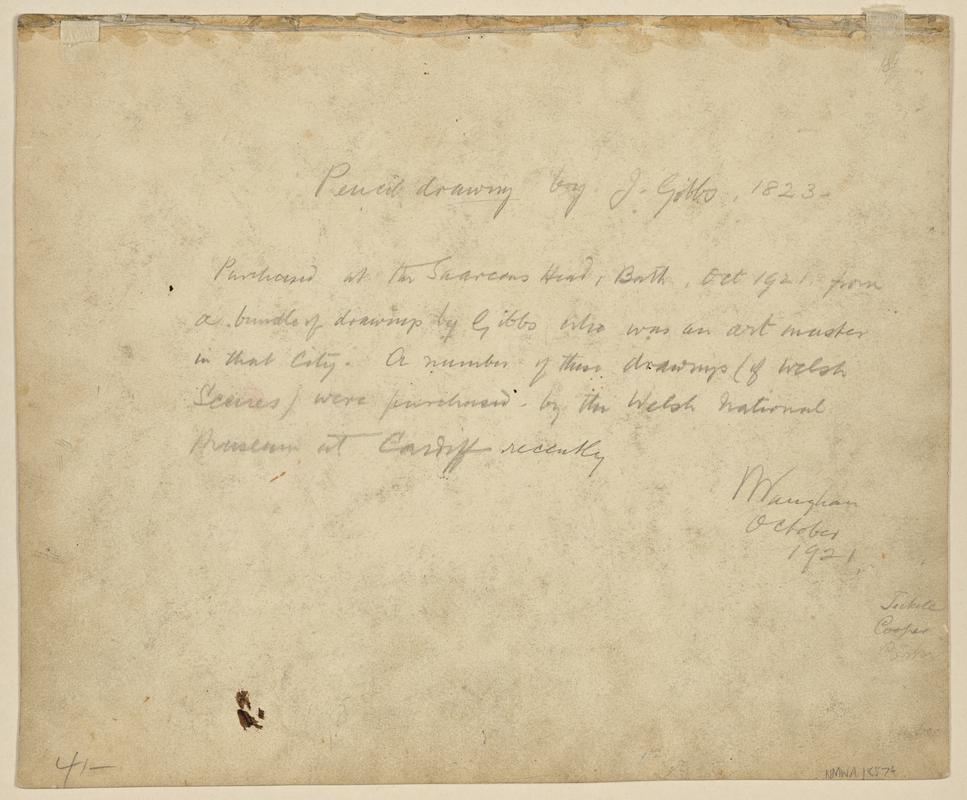 Pencil drawing by J. Gibbs, 1823-
Purchased at the Saracens Head, Bath, Oct 1921 from
a bundle of drawings by Gibbs who was an art master
in that City. A number of these drawings (of Welsh
Scenes) were purchased by the Welsh National
Museum at Cardiff recently
Vaughan
October
1921
Cooper
4/-
NMWA